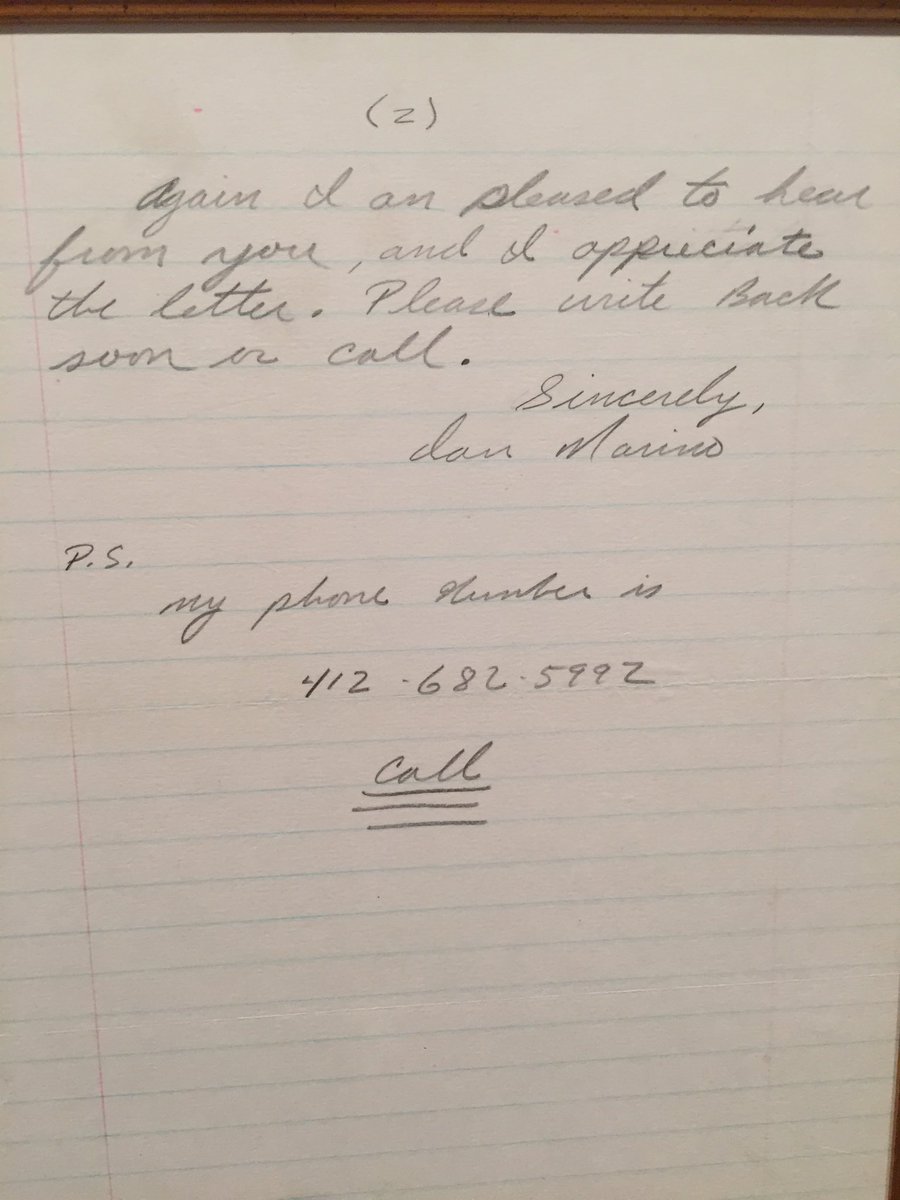 (2)
Again I am pleased to hear
from you, and I appriciate
the letter. Please write Back
soon or call.
Sincerely,
Dan Marino
P.S.
my phone Number is
412-682-5992
Call